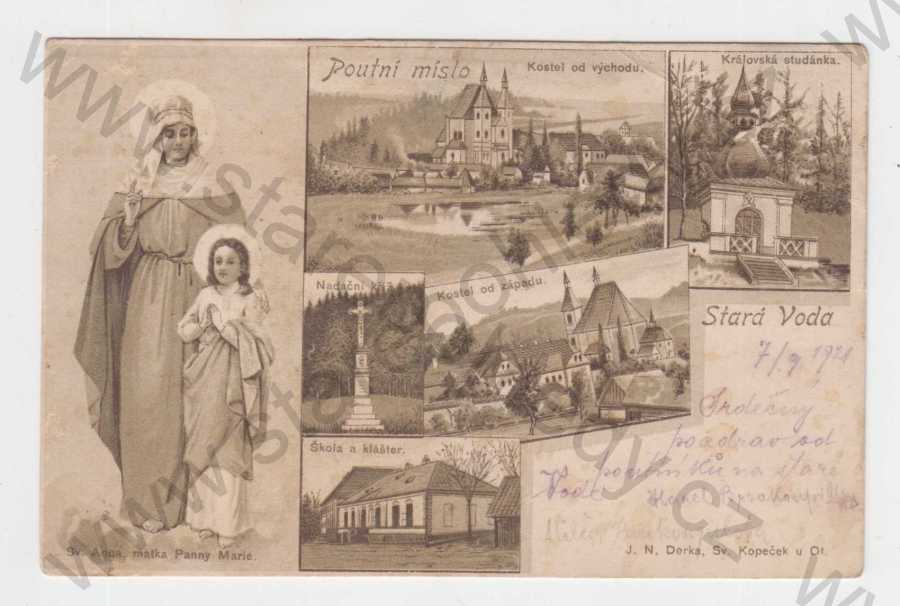 Poutní místo
Kostel od východu.
Královská studánka.
Nadační kříž.
Kostel od západu.
Stará Voda
7/9 1921
Srdečný
pozdrav od
poutníků na staré
Vodě
Škola a klášter.
Sv. Anna, matka Panny Marie.
J. N. Derka, Sv. Kopeček u Ol.